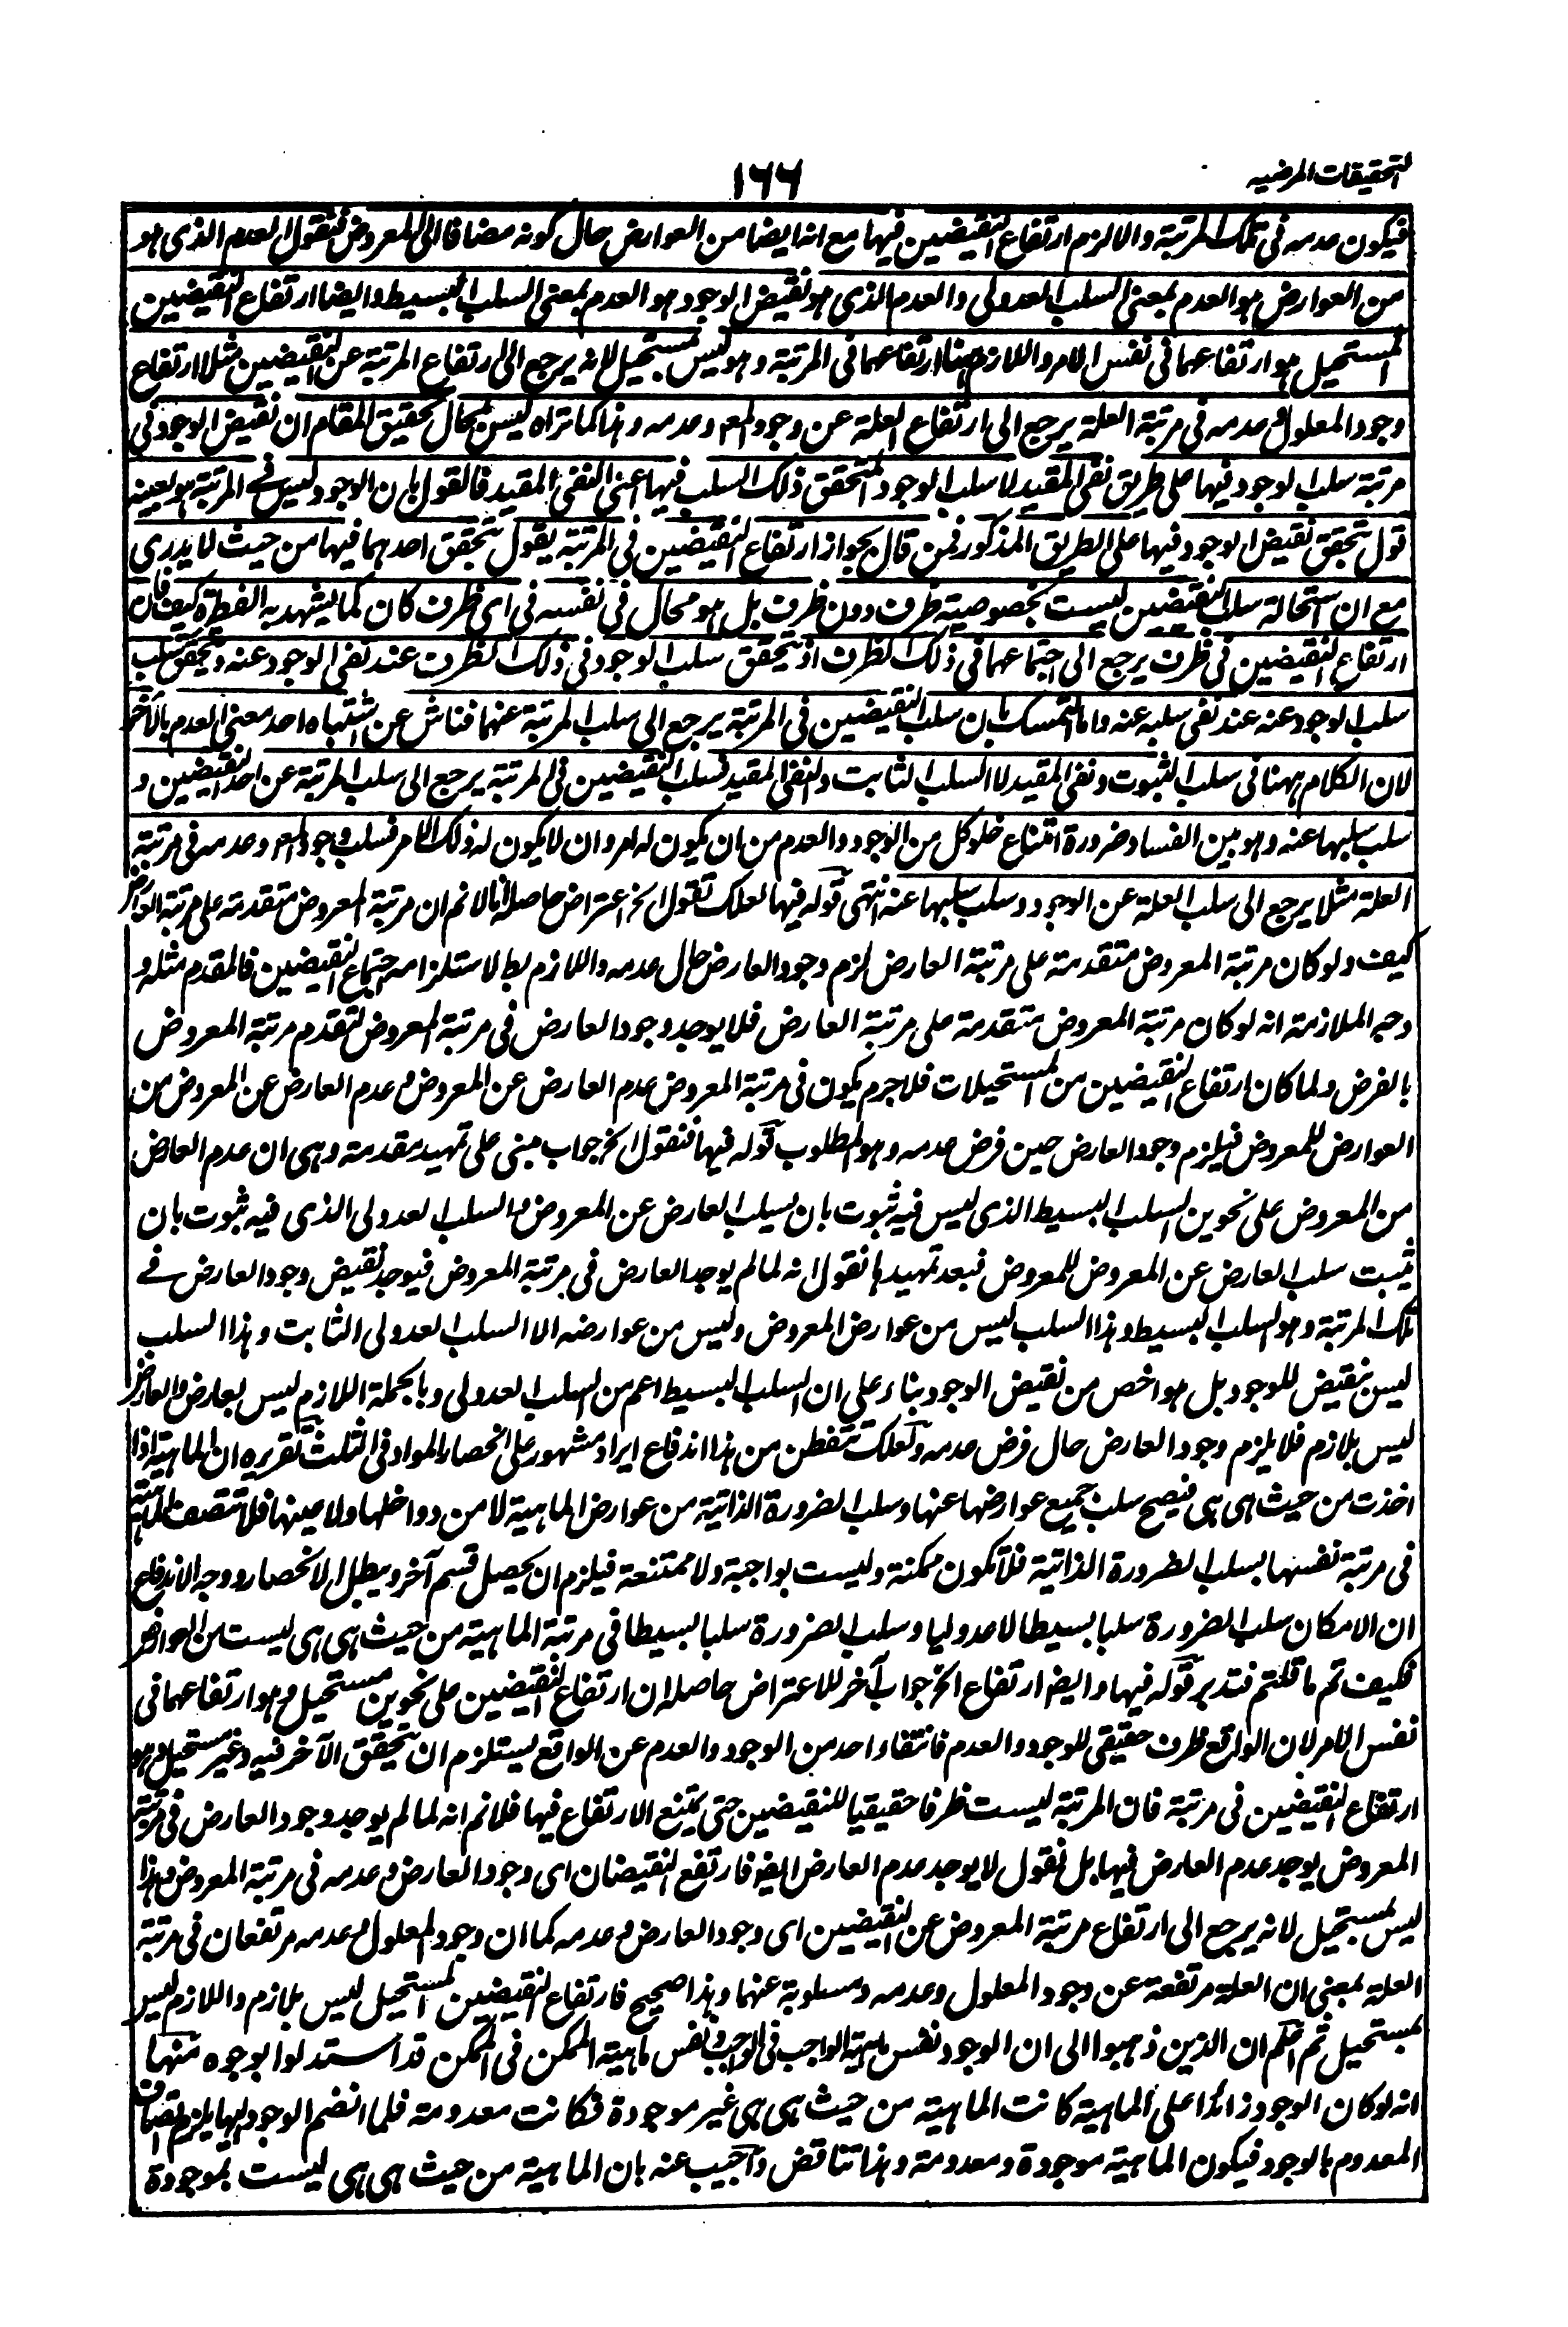 التحقيقات المرضيه
١٦٦
فيكون عدمه فى تلك المرتبة والا لزم ارتفاع النقيضين فيها مع انه ايضا من العوارض حال كونه مضافا الى المعروض فنقول العدم الذى هو
من العوارض هو العدم بمعنى السلب العدولى والعدم الذى هو نقيض الوجود هو العدم بمعنى السلب البسيط وايضا ارتفاع النقيضين
المستحيل هو ارتفاعهما فى نفس الامر واللازم ههنا ارتفاعهما فى المرتبة وهو ليس بمستحيل لانه يرجع الى ارتفاع المرتبة عن النقيضين مثلا ارتفاع
وجود المعلول وعدمه فى مرتبة العلة يرجع الى ارتفاع العلة عن وجود المعـ وعدمه وهذا كما تراه ليس بمحال تحقيق المقام ان نقيض الوجود فى
مرتبة سلب الوجود فيها على طريق نفى المقيد لا سلب الوجود المتحقق ذلك السلب فيها اعنى النفى المقيد فالقول بان الوجود ليس فى المرتبة هو بعينه
قول تحقق نقيض الوجود فيها على الطريق المذكور فمن قال بجواز ارتفاع النقيضين فى المرتبة يقول بتحقق احدهما فيها من حيث لا يدرى
مع ان استحالة سلب النقيضين ليست بخصوصية ظرف دون ظرف بل هو محال فى نفسه فى اى ظرف كان كما يشهد به الفطرة كيف فان
ارتفاع النقيضين فى ظرف يرجع الى اجتماعهما فى ذلك الظرف اذ يتحقق سلب الوجود فى ذلك الظرف عند نفى الوجود عنه ويتحقق سلب
سلب الوجود عنه عند نفى سلبه عنه واما التمسك بان سلب النقيضين فى المرتبة يرجع الى سلب المرتبة عنهما فناش عن اشتباه احد معنى العدم بالآخر
لان الكلام ههنا فى سلب الثبوت ونفى المقيد لا السلب الثابت والنفى المقيد فسلب النقيضين فى المرتبة يرجع الى سلب المرتبة عن احد النقيضين و
سلب سلبها عنه وهو بين الفساد ضرورة امتناع خلو كل من الوجود والعدم من ان يكون له امر وان لا يكون له ذلك الامر فسلب وجود المعـ وعدمه فى مرتبة
العلة مثلا يرجع الى سلب العلة عن الوجود وسلب سلبها عنه انتهى قوله فيها لعلك تقول الخ اعتراض حاصله انا لانم ان مرتبة المعروض متقدمة على مرتبة العارض
كيف ولو كان مرتبة المعروض متقدمة على مرتبة العارض لزم وجود العارض حال عدمه واللازم بط لاستلزامه اجتماع النقيضين فالمقدم مثله و
وجه الملازمة انه لو كان مرتبة المعروض متقدمة على مرتبة العارض فلا يوجد وجود العارض فى مرتبة المعروض لتقدم مرتبة المعروض
بالفرض ولما كان ارتفاع النقيضين من المستحيلات فلا جرم يكون فى مرتبة المعروض عدم العارض عن المعروض وعدم العارض عن المعروض من
العوارض للمعروض فيلزم وجود العارض حين فرض عدمه وهو المطلوب قوله فيها فنقول الخ جواب مبنى على تمهيد مقدمة وهى ان عدم العارض
من المعروض على نحوين السلب البسيط الذى ليس فيه ثبوت بان يسلب العارض عن المعروض والسلب العدولى الذى فيه ثبوت بان
يثبت سلب العارض عن المعروض للمعروض فبعد تمهيدها نقول انه لما لم يوجد العارض فى مرتبة المعروض فيوجد نقيض وجود العارض فے
تلك المرتبة وهو السلب البسيط وهذا السلب ليس من عوارض المعروض وليس من عوارضه الا السلب العدولى الثابت وهذا السلب
ليس بنقيض للوجود بل هو اخص من نقيض الوجود بناء على ان السلب البسيط اعم من السلب العدولى وبالجملة اللازم ليس بعارض والعارض
ليس بلازم فلا يلزم وجود العارض حال فرض عدمه ولعلك تتفطن من هذا اندفاع ايراد مشهور على انحصار المواد فى الثلث تقريره ان الماهية اذا
اخذت من حيث هى هى فيصح سلب جميع عوارضها عنها وسلب الضرورة الذاتية من عوارض الماهية لا من دواخلها ولا عينها فلا تتصف الماهية
فى مرتبة نفسها بسلب الضرورة الذاتية فلا تكون ممكنة وليست بواجبة ولا ممتنعة فيلزم ان يحصل قسم آخر ويبطل الانحصار ووجه الاندفاع
ان الامكان سلب الضرورة سلبا بسيطا لا عدوليا وسلب الضرورة سلبا بسيطا فى مرتبة الماهية من حيث هى هى ليست من العوارض
فكيف تم ما قلتم فتدبر قوله فيها وايضا ارتفاع الخ جواب آخر للاعتراض حاصله ان ارتفاع النقيضين على نحوين مستحيل وهو ارتفاعهما فى
نفس الامر لان الواقع ظرف حقيقى للوجود والعدم فانتفاء احد من الوجود والعدم عن الواقع يستلزم ان يتحقق الآخر فيه وغير مستحيل وهو
ارتفاع النقيضين فى مرتبة فان المرتبة ليست ظرفا حقيقيا للنقيضين حتى يمتنع الارتفاع فيها فلانم انه لما لم يوجد وجود العارض فى مرتبة
المعروض يوجد عدم العارض فيها بل نقول لا يوجد عدم العارض ايضا فارتفع النقيضان اى وجود العارض وعدمه فى مرتبة المعروض وهذا
ليس بمستحيل لانه يرجع الى ارتفاع مرتبة المعروض عن النقيضين اى وجود العارض وعدمه كما ان وجود المعلول وعدمه مرتفعان فى مرتبة
العلة بمعنى ان العلة مرتفعة عن وجود المعلول وعدمه ومسلوبة عنهما وهذا صحيح فارتفاع النقيضين المستحيل ليس بلازم واللازم ليس
بمستحيل ثم اعلم ان الذين ذهبوا الى ان الوجود نفس ماهية الواجب فى الواجب ونفس ماهية الممكن فى الممكن قد استدلوا بوجوه منها
انه لو كان الوجود زائدا على الماهية كانت الماهية من حيث هى هى غير موجودة فكانت معدومة فلما انضم الوجود اليها يلزم اتصاف
المعدوم بالوجود فيكون الماهية موجودة ومعدومة وهذا تناقض واجيب عنه بان الماهية من حيث هى هى ليست بموجودة